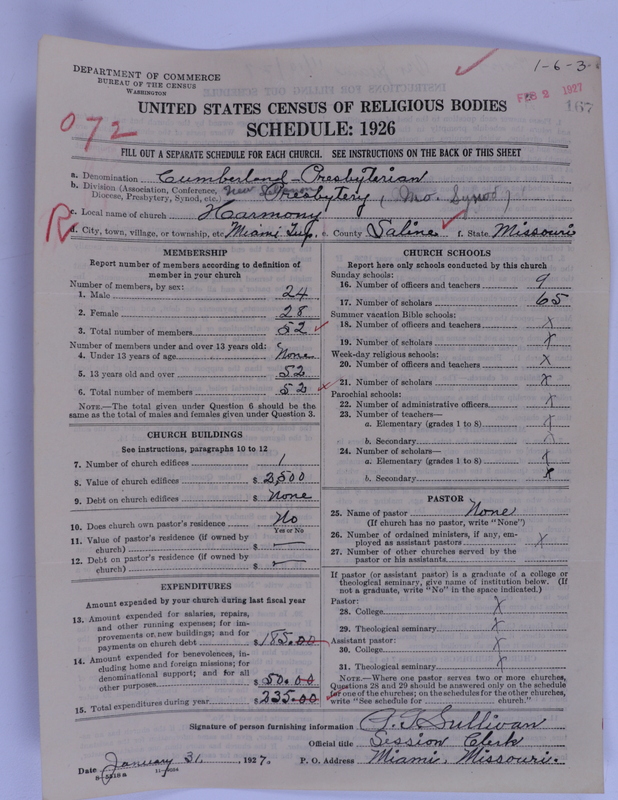 1-6-3-
DEPARTMENT OF COMMERCE
BUREAU OF THE CENSUS
WASHINGTON
FEB 2 1927
167
UNITED STATES CENSUS OF RELIGIOUS BODIES
SCHEDULE: 1926
072
FILL OUT A SEPARATE SCHEDULE FOR EACH CHURCH. SEE INSTRUCTIONS ON THE BACK OF THIS SHEET
a. Denomination Cumberland Presbyterian
b. Division (Association, Conference, Diocese, Presbytery, Synod, etc.) New Lebanon Presbytery, (Mo. Synod)
R
c. Local name of church Harmony
d. City, town, village, or township, etc. Miami Twp. e. County Saline f. State Missouri
MEMBERSHIP
Report number of members according to definition of
member in your church
Number of members, by sex:
1. Male 24
2. Female 28
3. Total number of members 52
Number of members under and over 13 years old:
4. Under 13 years of age None
5. 13 years old and over 52
6. Total number of members 52
NOTE.—The total given under Question 6 should be the
same as the total of males and females given under Question 3.
CHURCH BUILDINGS
See instructions, paragraphs 10 to 12
7. Number of church edifices 1
8. Value of church edifices $ 2500
9. Debt on church edifices $ None
10. Does church own pastor's residence No
Yes or No
11. Value of pastor's residence (if owned by
church) $ —
12. Debt on pastor's residence (if owned by
church) $ —
EXPENDITURES
Amount expended by your church during last fiscal year
13. Amount expended for salaries, repairs,
and other running expenses; for im-
provements or new buildings; and for
payments on church debt $ 185.00
14. Amount expended for benevolences, in-
cluding home and foreign missions; for
denominational support; and for all
other purposes $ 50.00
15. Total expenditures during year 235.00
CHURCH SCHOOLS
Report here only schools conducted by this church
Sunday schools:
16. Number of officers and teachers 9
17. Number of scholars 65
Summer vacation Bible schools:
18. Number of officers and teachers X
19. Number of scholars X
Week-day religious schools:
20. Number of officers and teachers X
21. Number of scholars X
Parochial schools:
22. Number of administrative officers X
23. Number of teachers—
a. Elementary (grades 1 to 8) X
b. Secondary X
24. Number of scholars—
a. Elementary (grades 1 to 8) X
b. Secondary X
PASTOR
25. Name of pastor None
(If church has no pastor, write "None")
26. Number of ordained ministers, if any, em-
ployed as assistant pastors X
27. Number of other churches served by the
pastor or his assistants
If pastor (or assistant pastor) is a graduate of a college or
theological seminary, give name of institution below. (If
not a graduate, write "No" in the space indicated.)
Pastor:
28. College X
29. Theological seminary X
Assistant pastor:
30. College X
31. Theological seminary X
NOTE.—Where one pastor serves two or more churches,
Questions 28 and 29 should be answered only on the schedule
for one of the churches; on the schedules for the other churches,
write "See schedule for church."
Signature of person furnishing information Sullivan
Official title Session Clerk
Date January 31, 1927. P. O. Address Miami, Missouri.